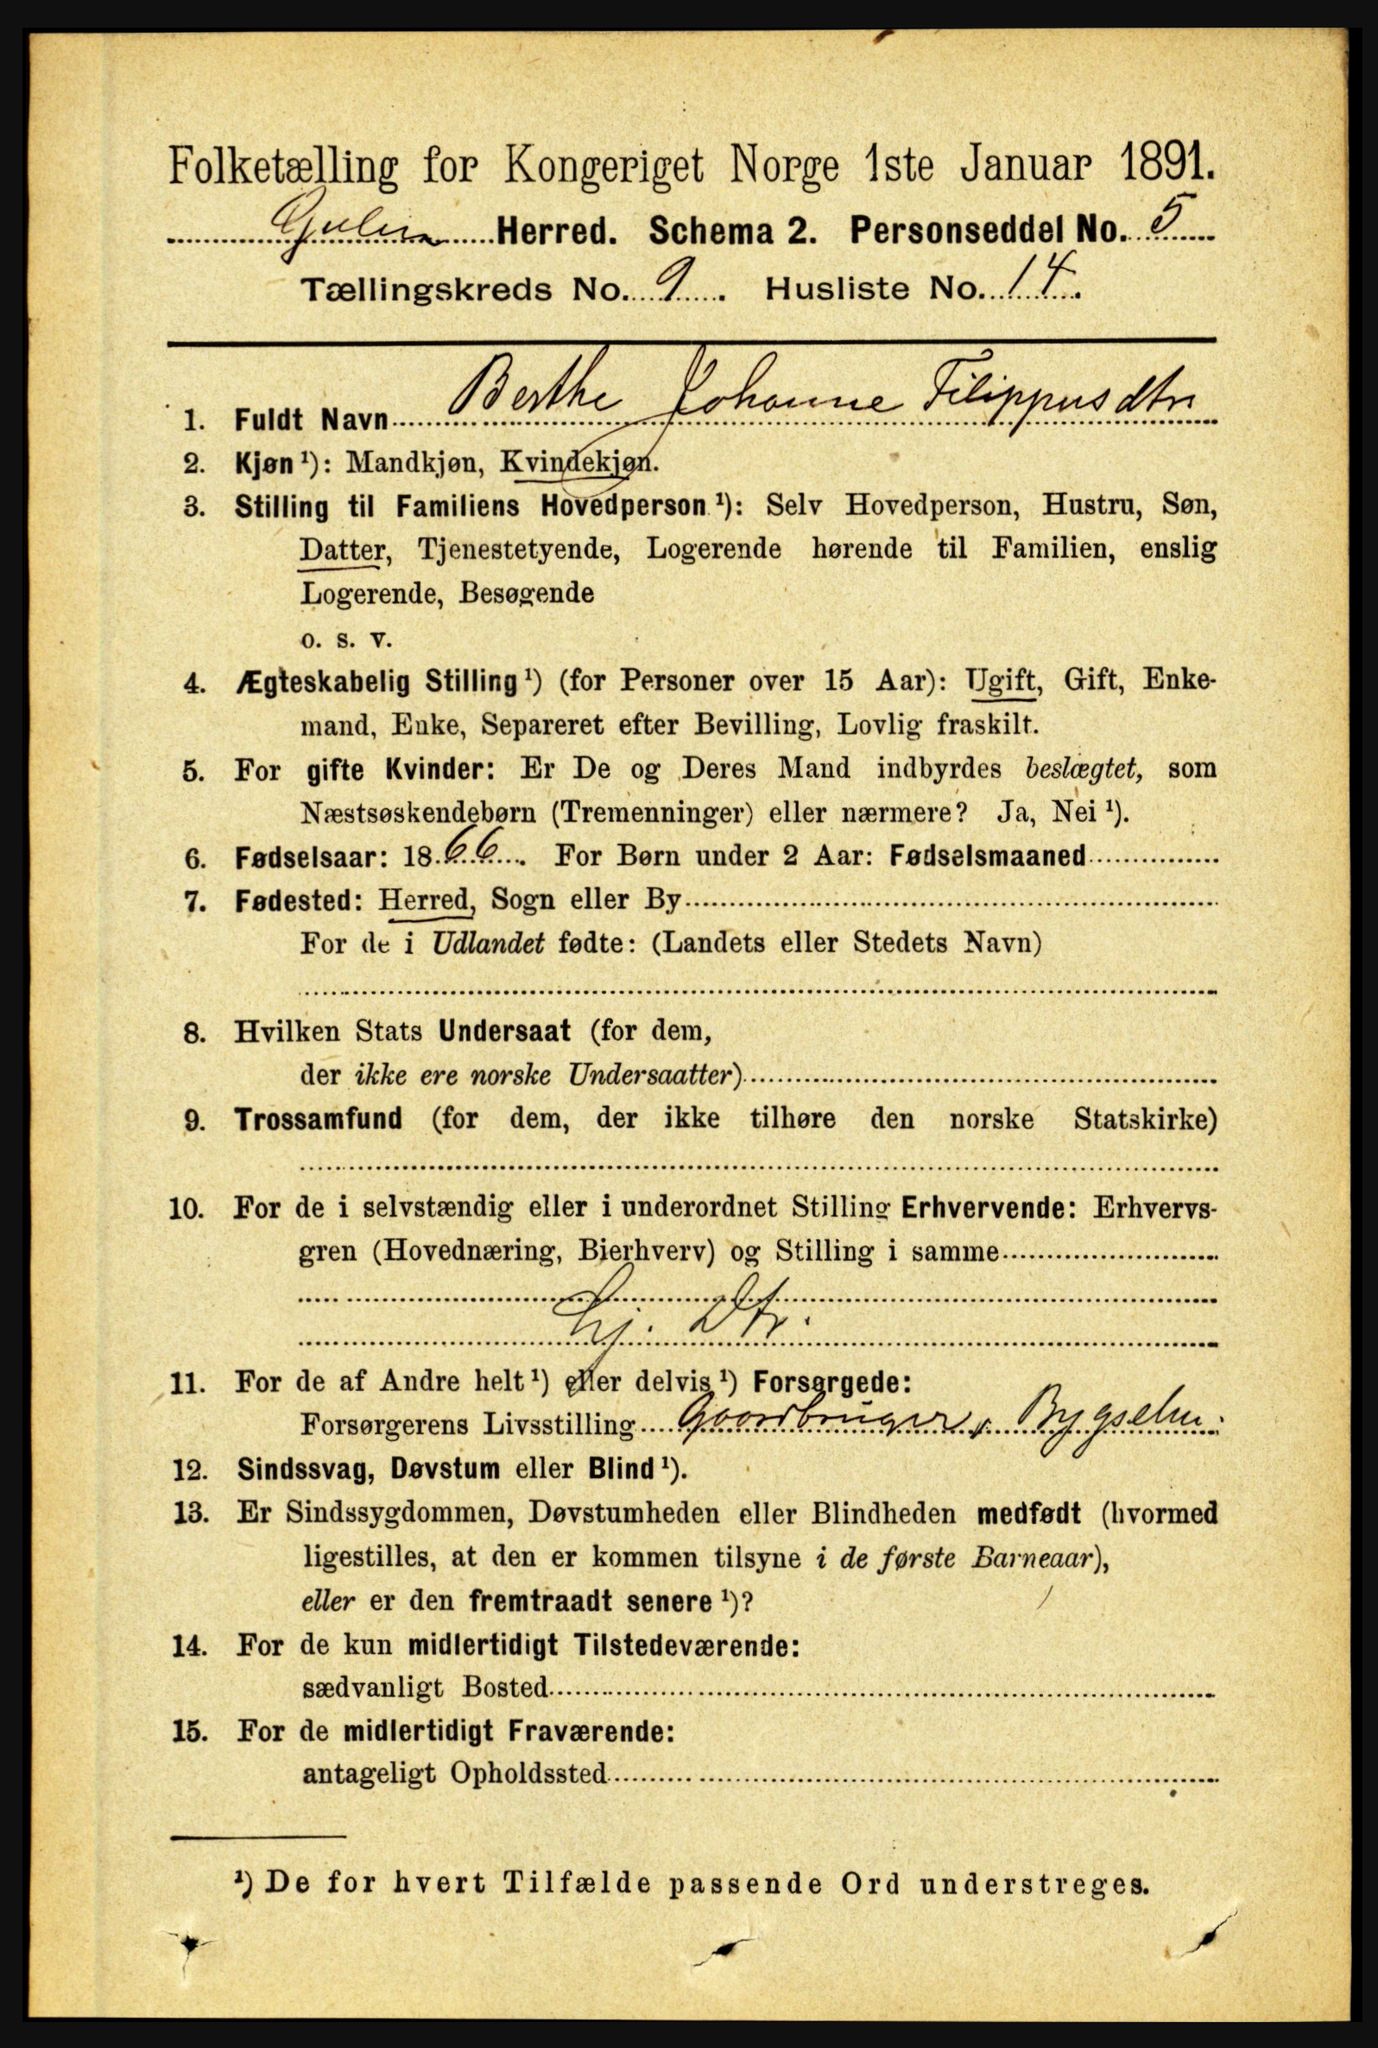 Folketælling for Kongeriget Norge 1ste Januar 1891.
Gulen Herred. Schema 2. Personseddel No. 5
Tællingskreds No. 9. Husliste No. 14.
1. Fuldt Navn Berthe Johanne Filippusdtr
2. Kjøn ¹): Mandkjøn, Kvindekjøn.
3. Stilling til Familiens Hovedperson ¹): Selv Hovedperson, Hustru, Søn,
Datter, Tjenestetyende, Logerende hørende til Familien, enslig
Logerende, Besøgende
o. s. v.
4. Ægteskabelig Stilling ¹) (for Personer over 15 Aar): Ugift, Gift, Enke-
mand, Enke, Separeret efter Bevilling, Lovlig fraskilt.
5. For gifte Kvinder: Er De og Deres Mand indbyrdes beslægtet, som
Næstsøskendebørn (Tremenninger) eller nærmere? Ja, Nei ¹).
6. Fødselsaar: 1866. For Børn under 2 Aar: Fødselsmaaned
7. Fødested: Herred, Sogn eller By
For de i Udlandet fødte: (Landets eller Stedets Navn)
8. Hvilken Stats Undersaat (for dem,
der ikke ere norske Undersaatter)
9. Trossamfund (for dem, der ikke tilhøre den norske Statskirke)
10. For de i selvstændig eller i underordnet Stilling Erhvervende: Erhvervs-
gren (Hovednæring, Bierhverv) og Stilling i samme
Hj. Dtr.
11. For de af Andre helt ¹) eller delvis ¹) Forsørgede:
Forsørgerens Livsstilling Gaardbruger, Bygselm.
12. Sindssvag, Døvstum eller Blind ¹).
13. Er Sindssygdommen, Døvstumheden eller Blindheden medfødt (hvormed
ligestilles, at den er kommen tilsyne i de første Barneaar),
eller er den fremtraadt senere ¹)?
14. For de kun midlertidigt Tilstedeværende:
sædvanligt Bosted
15. For de midlertidigt Fraværende:
antageligt Opholdssted
¹) De for hvert Tilfælde passende Ord understreges.